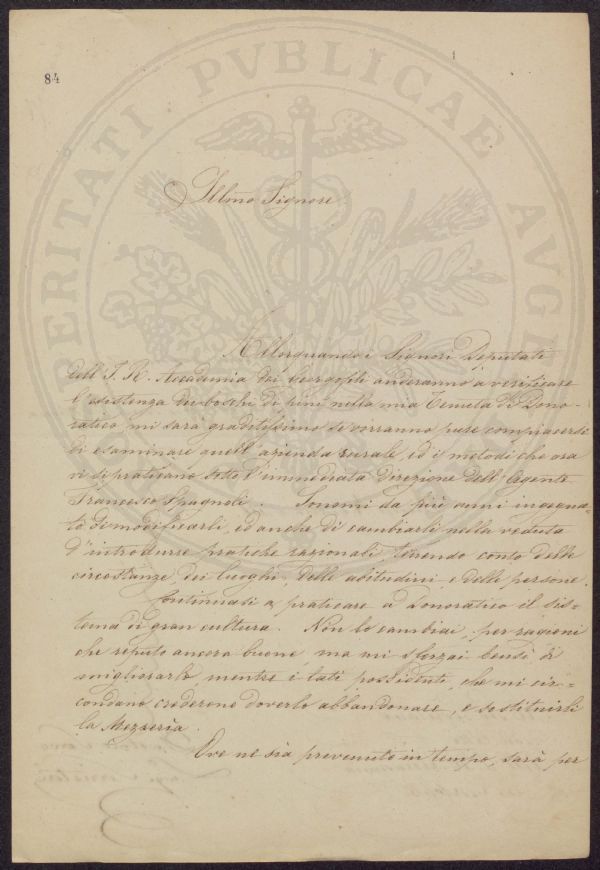 84
Illmo Signore
Allorquando i Signori Deputati
dell' I. R. Accademia dei Georgofili anderanno a verificare
l'esistenza dei boschi di pini nella mia Tenuta di Dono=
ratico, mi sarà graditissimo se vorranno pure compiacersi
di esaminare quell' azienda rurale, ed i metodi che ora
vi si praticano sotto l'immediata direzione dell' Agente
Francesco Spagnoli. Sonomi da più anni ingegna=
to di modificarli, ed anche di cambiarli nella veduta
d'introdurre pratiche razionali, tenendo conto delle
circostanze, dei luoghi, delle abitudini, e delle persone.
Continuasi a praticare a Donoratico il sis=
tema di gran cultura. Non lo cambiai, per ragioni
che reputo ancora buone, ma mi sforzai bensì di
migliorarlo, mentre i lati possidenti, che mi cir=
condano crederono doverlo abbandonare, e sostituirli
la Mezzeria.
Ove ne sia prevenuto in tempo, sarà per
VERITATI PVBLICAE AVGE